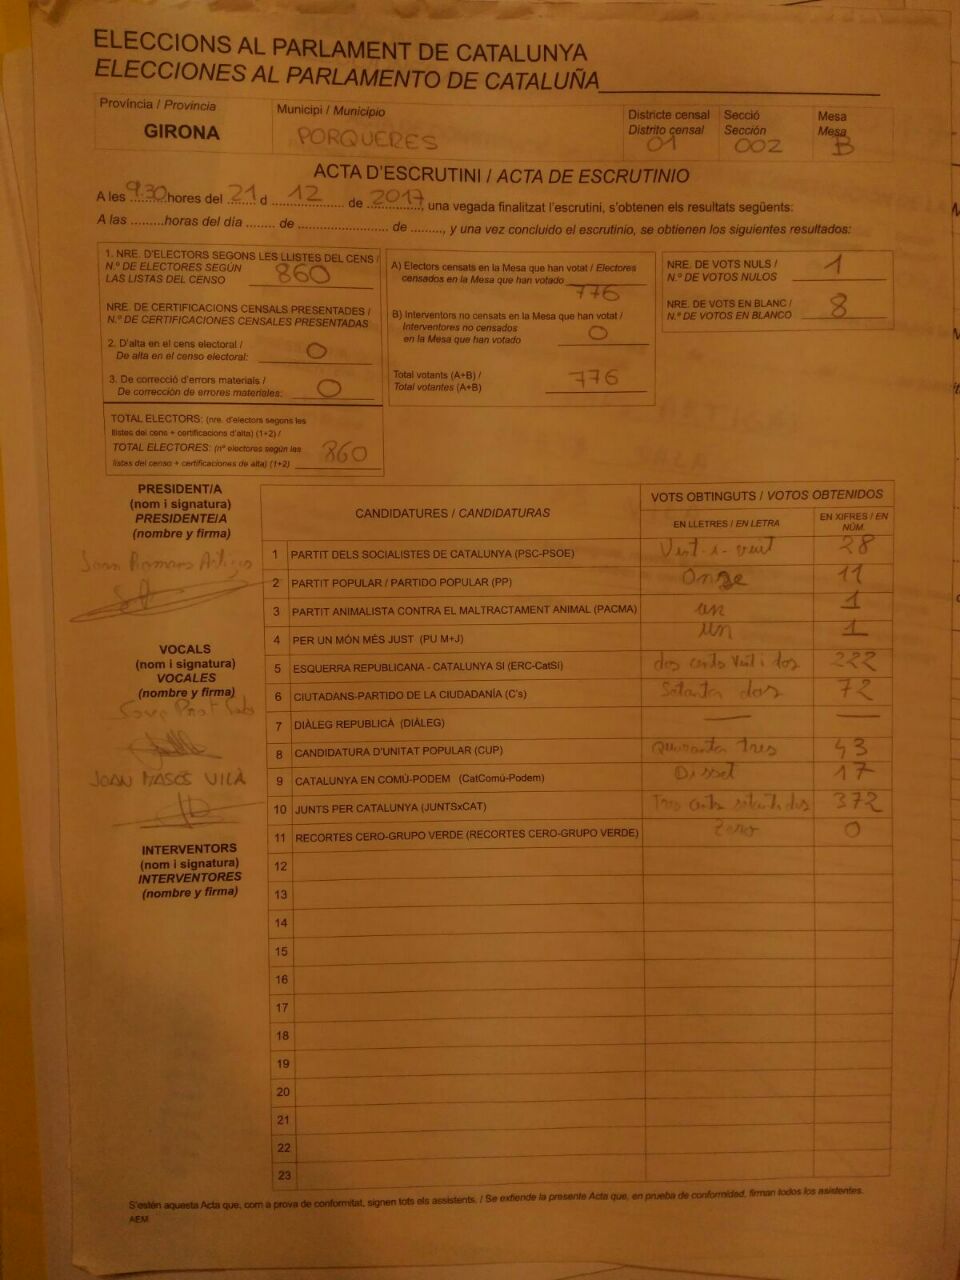 ELECCIONS AL PARLAMENT DE CATALUNYA
ELECCIONES AL PARLAMENTO DE CATALUÑA
Província / Provincia
GIRONA
Municipi / Municipio
PORQUERES
Districte censal
Distrito censal
01
Secció
Sección
002
Mesa
Mesa
B
ACTA D'ESCRUTINI / ACTA DE ESCRUTINIO
A les 9:30 hores del 21 d 12 de 2017, una vegada finalitzat l'escrutini, s'obtenen els resultats següents:
A las .........horas del día ........ de ........................ de ........., y una vez concluido el escrutinio, se obtienen los siguientes resultados:
1. NRE. D'ELECTORS SEGONS LES LLISTES DEL CENS /
N.º DE ELECTORES SEGÚN
LAS LISTAS DEL CENSO 860
NRE. DE CERTIFICACIONS CENSALS PRESENTADES /
N.º DE CERTIFICACIONES CENSALES PRESENTADAS
2. D'alta en el cens electoral /
De alta en el censo electoral: 0
3. De correcció d'errors materials /
De corrección de errores materiales: 0
TOTAL ELECTORS: (nre. d'electors segons les
llistes del cens + certificacions d'alta) (1+2) /
TOTAL ELECTORES: (nº electores según las
listas del censo + certificaciones de alta) (1+2) 860
A) Electors censats en la Mesa que han votat / Electores
censados en la Mesa que han votado 776
B) Interventors no censats en la Mesa que han votat /
Interventores no censados
en la Mesa que han votado 0
Total votants (A+B) /
Total votantes (A+B) 776
NRE. DE VOTS NULS /
N.º DE VOTOS NULOS 1
NRE. DE VOTS EN BLANC /
N.º DE VOTOS EN BLANCO 8
PRESIDENT/A
(nom i signatura)
PRESIDENTE/A
(nombre y firma)
Joan
VOCALS
(nom i signatura)
VOCALES
(nombre y firma)
JOAN MASOS VILÀ
INTERVENTORS
(nom i signatura)
INTERVENTORES
(nombre y firma)
CANDIDATURES / CANDIDATURAS
VOTS OBTINGUTS / VOTOS OBTENIDOS
EN LLETRES / EN LETRA
EN XIFRES / EN
NÚM.
1 PARTIT DELS SOCIALISTES DE CATALUNYA (PSC-PSOE) Vint-i-vuit 28
2 PARTIT POPULAR / PARTIDO POPULAR (PP) Onze 11
3 PARTIT ANIMALISTA CONTRA EL MALTRACTAMENT ANIMAL (PACMA) un 1
4 PER UN MÓN MÉS JUST (PU M+J) un 1
5 ESQUERRA REPUBLICANA - CATALUNYA SI (ERC-CatSí) dos cents vint i dos 222
6 CIUTADANS-PARTIDO DE LA CIUDADANÍA (C's) Setanta dos 72
7 DIÀLEG REPUBLICÀ (DIÀLEG) — —
8 CANDIDATURA D'UNITAT POPULAR (CUP) Quaranta tres 43
9 CATALUNYA EN COMÚ-PODEM (CatComú-Podem) Disset 17
10 JUNTS PER CATALUNYA (JUNTSxCAT) Tres cents setanta dos 372
11 RECORTES CERO-GRUPO VERDE (RECORTES CERO-GRUPO VERDE) Zero 0
12
13
14
15
16
17
18
19
20
21
22
23
S'estén aquesta Acta que, com a prova de conformitat, signen tots els assistents. / Se extiende la presente Acta que, en prueba de conformidad, firman todos los asistentes.
AEM